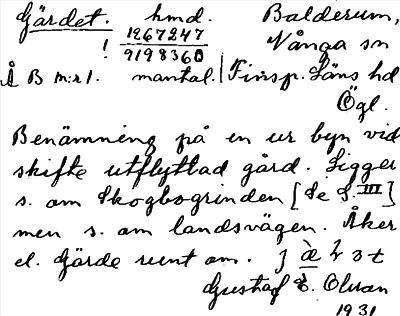 Gärdet. hmd. Balderum,
! 1267247 Vånga sn
9198360
Å B m:r 1. mantal. Finsp. Läns hd
Ögl.
Benämning på en ur byn vid
skifte utflyttad gård. Ligger
s. om Skogbogrinden [Se S. III]
men s. om landsvägen. Åker
el. Gärde runt om.
Gustaf E. Olsson
1931